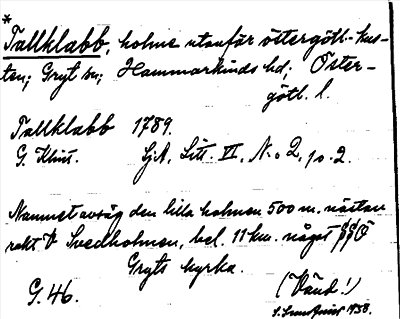 *
Tallklabb, holme utanför östergötl. kus-
ten; Gryt sn; Hammarkinds hd; Öster-
götl. l.
Tallklabb 1789.
G. Klint. Sjk. Litt. VI, N:o 2, p. 2.
Namnet avsåg den lilla holmen 500 m. nästan
rakt V Svedholmen, bel. 11 km. något Ö
Gryts kyrka.
G. 46. (Vänd!)
1938.